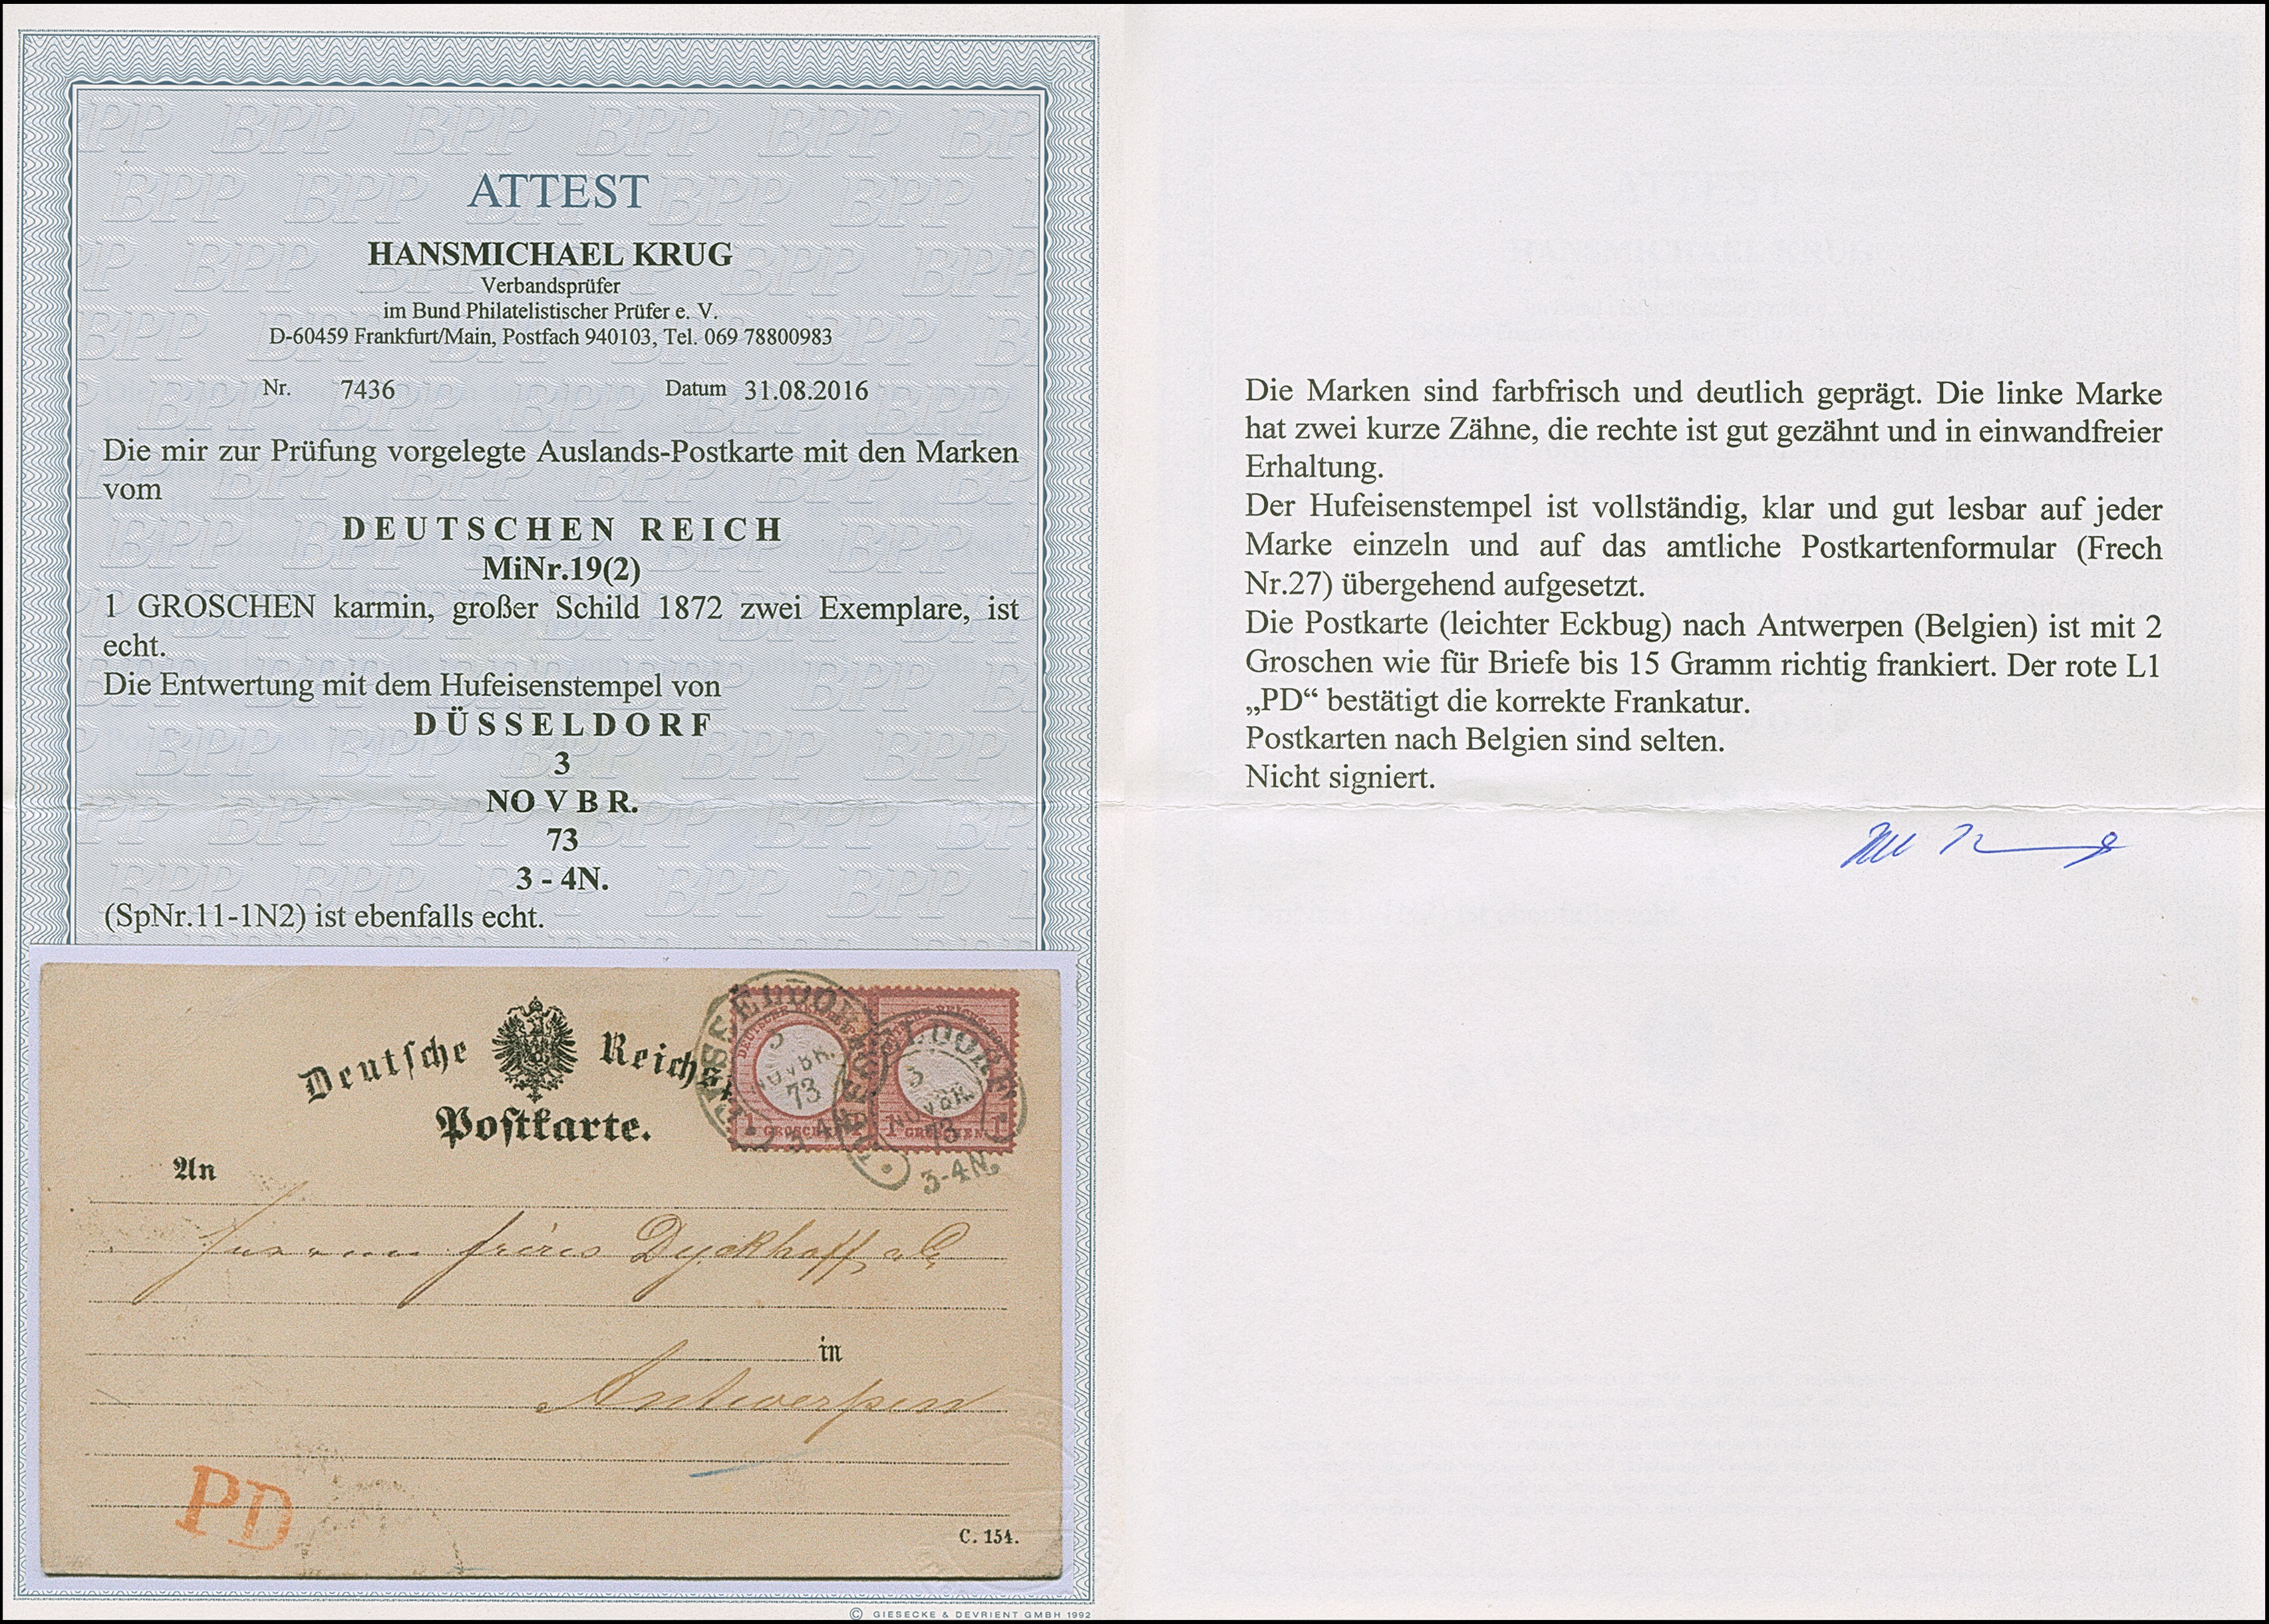 ATTEST
HANSMICHAEL KRUG
Verbandsprüfer
im Bund Philatelistischer Prüfer e. V.
D-60459 Frankfurt/Main, Postfach 940103, Tel. 069 78800983
Nr. 7436 Datum 31.08.2016
Die mir zur Prüfung vorgelegte Auslands-Postkarte mit den Marken
vom
DEUTSCHEN REICH
MiNr.19(2)
1 GROSCHEN karmin, großer Schild 1872 zwei Exemplare, ist
echt.
Die Entwertung mit dem Hufeisenstempel von
DÜSSELDORF
3
NO V B R.
73
3 - 4N.
(SpNr.11-1N2) ist ebenfalls echt.
Deutsche Reichs
Postkarte.
3
NOVBR.
73
1 GROSCHEN 1
3
NOVBR.
73
1 GROSCHEN 1
3-4N.
An
frères Dyckhoff & C
in
Antwerpen
PD
C. 154.
© GIESECKE & DEVRIENT GMBH 1992
Die Marken sind farbfrisch und deutlich geprägt. Die linke Marke
hat zwei kurze Zähne, die rechte ist gut gezähnt und in einwandfreier
Erhaltung.
Der Hufeisenstempel ist vollständig, klar und gut lesbar auf jeder
Marke einzeln und auf das amtliche Postkartenformular (Frech
Nr.27) übergehend aufgesetzt.
Die Postkarte (leichter Eckbug) nach Antwerpen (Belgien) ist mit 2
Groschen wie für Briefe bis 15 Gramm richtig frankiert. Der rote L1
„PD“ bestätigt die korrekte Frankatur.
Postkarten nach Belgien sind selten.
Nicht signiert.